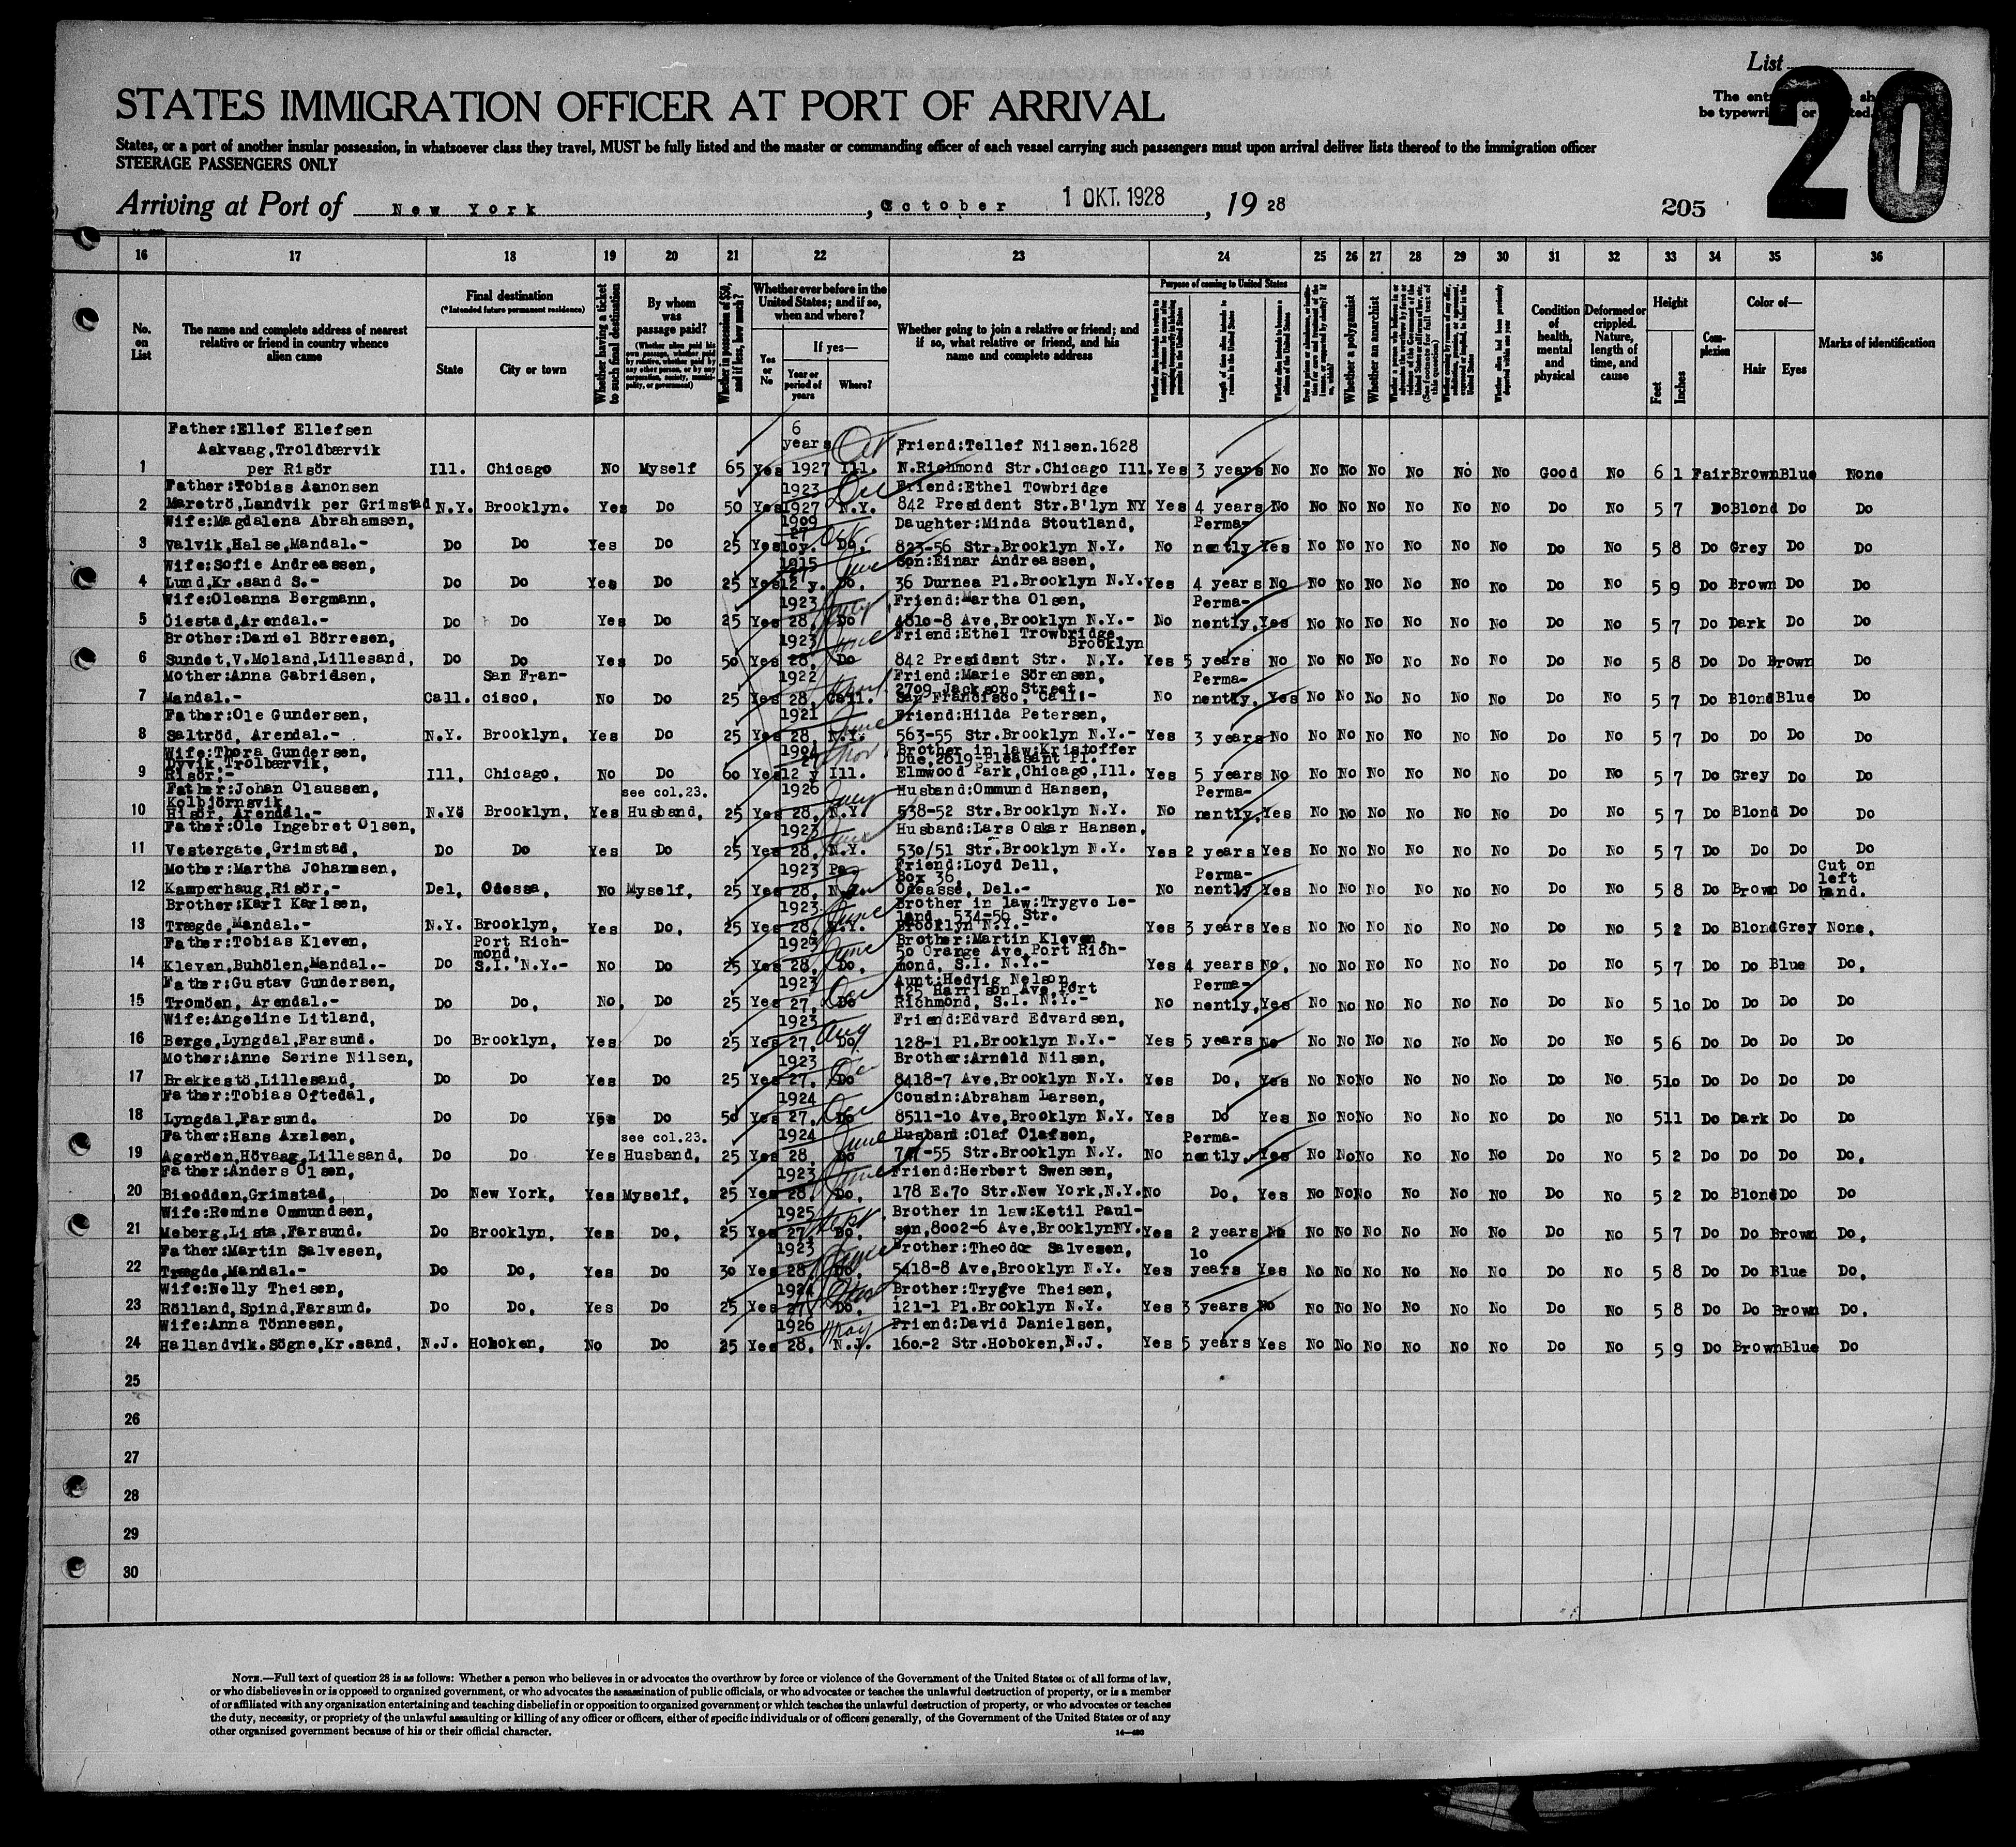 List
20
The entries on this sheet must
be typewritten or printed.
STATES IMMIGRATION OFFICER AT PORT OF ARRIVAL
States, or a port of another insular possession, in whatsoever class they travel, MUST be fully listed and the master or commanding officer of each vessel carrying such passengers must upon arrival deliver lists thereof to the immigration officer
STEERAGE PASSENGERS ONLY
Arriving at Port of New York, October 1 OKT. 1928, 19 28
205
16 17 18 19 20 21 22 23 24 25 26 27 28 29 30 31 32 33 34 35 36
No. on List
The name and complete address of nearest relative or friend in country whence alien came
Final destination
(*Intended future permanent residence)
State
City or town
Whether having a ticket to such final destination
By whom was passage paid?
(Whether alien paid his own passage, whether paid by relative, whether paid by any other person, or by any corporation, society, municipality, or government)
Whether in possession of $50, and if less, how much?
Whether ever before in the United States; and if so, when and where?
Yes or No
If yes—
Year or period of years
Where?
Whether going to join a relative or friend; and if so, what relative or friend, and his name and complete address
Purpose of coming to United States
Length of time alien intends to remain in the United States
Whether alien intends to become a citizen of the United States
Whether a polygamist
Whether an anarchist
Condition of health, mental and physical
Deformed or crippled. Nature, length of time, and cause
Height
Feet
Inches
Complexion
Color of—
Hair
Eyes
Marks of identification
Father:Ellef Ellefsen 6
Aakvaag,Troldbærvik years Oct. Friend:Tellef Nilsen.1628
1 per Risör Ill. Chicago No Myself 65 Yes 1927 Ill. N.Richmond Str.Chicago Ill. Yes 3 years No No No No No No No Good No 6 1 Fair Brown Blue None
Father:Tobias Aanonsen 1923 Dec Friend:Ethel Towbridge
2 Maretrö,Landvik per Grimstad N.Y. Brooklyn. Yes Do 50 Yes 1927 N.Y. 842 President Str.B'lyn NY Yes 4 years No No No No No No No Do No 5 7 Do Blond Do Do
Wife:Magdalena Abrahamsen, 1909 27 Oct. Daughter:Minda Stoutland, Perma-
3 Valvik,Halse,Mandal.- Do Do Yes Do 25 Yes loy. Do. 823-56 Str.Brooklyn N.Y. No nently Yes No No No No No No Do No 5 8 Do Grey Do Do
Wife:Sofie Andreassen, 1915 27 June Son:Einar Andreassen,
4 Lund,Kr.sand S.- Do Do Yes Do 25 Yes 12 y. Do. 36 Durnea Pl.Brooklyn N.Y. Yes 4 years No No No No No No No Do No 5 9 Do Brown Do Do
Wife:Oleanna Bergmann, 1923 Friend:Martha Olsen, Perma-
5 Öiestad,Arendal.- Do Do Yes Do 25 Yes 28, Do 4810-8 Ave,Brooklyn N.Y.- No nently,Yes No No No No No No Do No 5 7 Do Dark Do Do
Brother:Daniel Börresen, 1923 June Friend:Ethel Trowbridge,
Brooklyn
6 Sundet,V.Moland,Lillesand, Do Do Yes Do 50 Yes 28, Do 842 President Str. N.Y. Yes 5 years No No No No No No No Do No 5 8 Do Do Brown Do
Mother:Anna Gabridsen, San Fran- 1922 Friend:Marie Sörensen, Perma-
2709 Jackson Street,
7 Mandal.- Call. cisco, No Do 25 Yes 28, Call. San Francisco, Call:- No nently, Yes No No No No No No Do No 5 7 Do Blond Blue Do
Father:Ole Gundersen, 1921 June Friend:Hilda Petersen,
8 Saltröd, Arendal.- N.Y. Brooklyn, Yes Do 25 Yes 28, N.Y. 563-55 Str.Brooklyn N.Y.- Yes 3 years No No No No No No No Do No 5 7 Do Do Do Do
Wife:Thora Gundersen, 1904 Nov. Brother in law:Kristoffer
Dyvik,Trolbærvik, 27 Due,2619-Pleasant Pl.
9 Risör:- Ill, Chicago, No Do 60 Yes 12 y Ill. Elmwood Park,Chicago,Ill. Yes 5 years No No No No No No No Do No 5 7 Do Grey Do Do
Father:Johan Olaussen, see col.23. 1926 Husband:Ommund Hansen, Perma-
Kolbjörnsvik,
10 Hisör, Arendal.- N.Yö Brooklyn, Yes Husband, 25 Yes 28, N.Y. 538-52 Str.Brooklyn N.Y. No nently,Yes No No No No No No Do No 5 7 Do Blond Do Do
Father:Ole Ingebret Olsen, 1923 June Husband:Lars Oskar Hansen,
11 Vestergate,Grimstad, Do Do Yes Do 25 Yes 28, N.Y. 530/51 Str.Brooklyn N.Y. Yes 2 years Yes No No No No No No Do No 5 7 Do Do Do Do
Mother:Martha Johannsen, 1923 Pa. Friend:Loyd Dell, Perma- Cut on
Box 36, left
12 Kamperhaug,Risör,- Del, Odessa, No Myself, 25 Yes 28, Odeasse, Del.- No nently Yes No No No No No No Do No 5 8 Do Brown Do hand.
Brother:Karl Karlsen, 1923 June Brother in law:Trygve Le-
land, 534-56 Str.
13 Trægde,Mandal.- N.Y. Brooklyn, Yes Do, 25 Yes 28, N.Y. Brooklyn N.Y.- Yes 3 years Yes No No No No No No Do No 5 2 Do Blond Grey None,
Father:Tobias Kleven, Port Rich- 1923 June Brother:Martin Kleven,
mond, 50 Orange Ave,Port Rich-
14 Kleven,Buhölen,Mandal.- Do S.I. N.Y.- No Do 25 Yes 28, Do, mond, S.I. N.Y.- Yes 4 years No, No No No No No No Do No 5 7 Do Do Blue Do,
Father:Gustav Gundersen, 1923 Dec Aunt:Hedvig Nelson, Perma-
125 Harrison Ave,Port
15 Tromöen, Arendal.- Do Do, No, Do 25 Yes 27, Do Richmond, S.I. N.Y.- No nently,Yes No No No No No No Do No 5 10 Do Do Do Do
Wife:Angeline Litland, 1923 Aug Friend:Edvard Edvardsen,
16 Berge,Lyngdal,Farsund. Do Brooklyn, Yes Do 25 Yes 27, Do, 128-1 Pl.Brooklyn N.Y.- Yes 5 years No No No No No No No Do No 5 6 Do Do Do Do
Mother:Anne Serine Nilsen, 1923 Brother:Arnold Nilsen,
17 Brekkestö,Lillesand, Do Do Yes Do 25 Yes 27, Do 8418-7 Ave,Brooklyn N.Y. Yes Do, Yes No No No No No No Do No 5 10 Do Do Do Do
Father:Tobias Oftedal, 1924 Dec Cousin:Abraham Larsen,
18 Lyngdal,Farsund. Do Do Yes Do 50 Yes 27, Do 8511-10 Ave,Brooklyn N.Y. Yes Do Yes No No No No No No Do No 5 11 Do Dark Do Do
Father:Hans Axelsen, see col.23. 1924 June Husband:Olaf Olafsen, Perma-
19 Ageröen,Hövaag,Lillesand, Do Do Yes Husband, 25 Yes 28, Do -55 Str.Brooklyn N.Y. No nently, Yes No No No No No No Do No 5 2 Do Do Do Do,
Father:Anders Olsen, 1923 June Friend:Herbert Swensen,
20 Biodden,Grimstad, Do New York, Yes Myself, 25 Yes 28, Do, 178 E.70 Str.New York,N.Y. No Do, Yes No No No No No No Do No 5 2 Do Blond Do Do
Wife:Remine Ommundsen, 1925 Sept. Brother in law:Ketil Paul-
21 Meberg,Lista,Farsund. Do Brooklyn, Yes Do, 25 Yes 27, Do, sen,8002-6 Ave,BrooklynNY. Yes 2 years No No No No No No No Do No 5 7 Do Do Brown Do,
Father:Martin Salvesen, 1923 June Brother:Theodor Salvesen, lo
22 Trægde,Mandal.- Do Do, Yes Do 30 Yes 28, Do, 5418-8 Ave,Brooklyn N.Y. Yes years Yes No No No No No No Do No 5 8 Do Do Blue Do,
Wife:Nelly Theisen, 1924 Brother:Trygve Theisen,
23 Rölland,Spind,Farsund. Do Do, Yes Do 25 Yes 27, Do, 121-1 Pl.Brooklyn N.Y. Yes 3 years No No No No No No No Do No 5 8 Do Do Brown Do,
Wife:Anna Tönnesen, 1926 May Friend:David Danielsen,
24 Hallandvik.Sögne,Kr.sand, N.J. Hoboken, No Do 25 Yes 28, N.J. 160.-2 Str.Hoboken,N.J. Yes 5 years Yes No No No No No No Do No 5 9 Do Brown Blue Do
25
26
27
28
29
30
NOTE.—Full text of question 28 is as follows: Whether a person who believes in or advocates the overthrow by force or violence of the Government of the United States or of all forms of law,
or who disbelieves in or is opposed to organized government, or who advocates the assassination of public officials, or who advocates or teaches the unlawful destruction of property, or is a member
of or affiliated with any organization entertaining and teaching disbelief in or opposition to organized government or which teaches the unlawful destruction of property, or who advocates or teaches
the duty, necessity, or propriety of the unlawful assaulting or killing of any officer or officers, either of specific individuals or of officers generally, of the Government of the United States or of any
other organized government because of his or their official character.
14—480